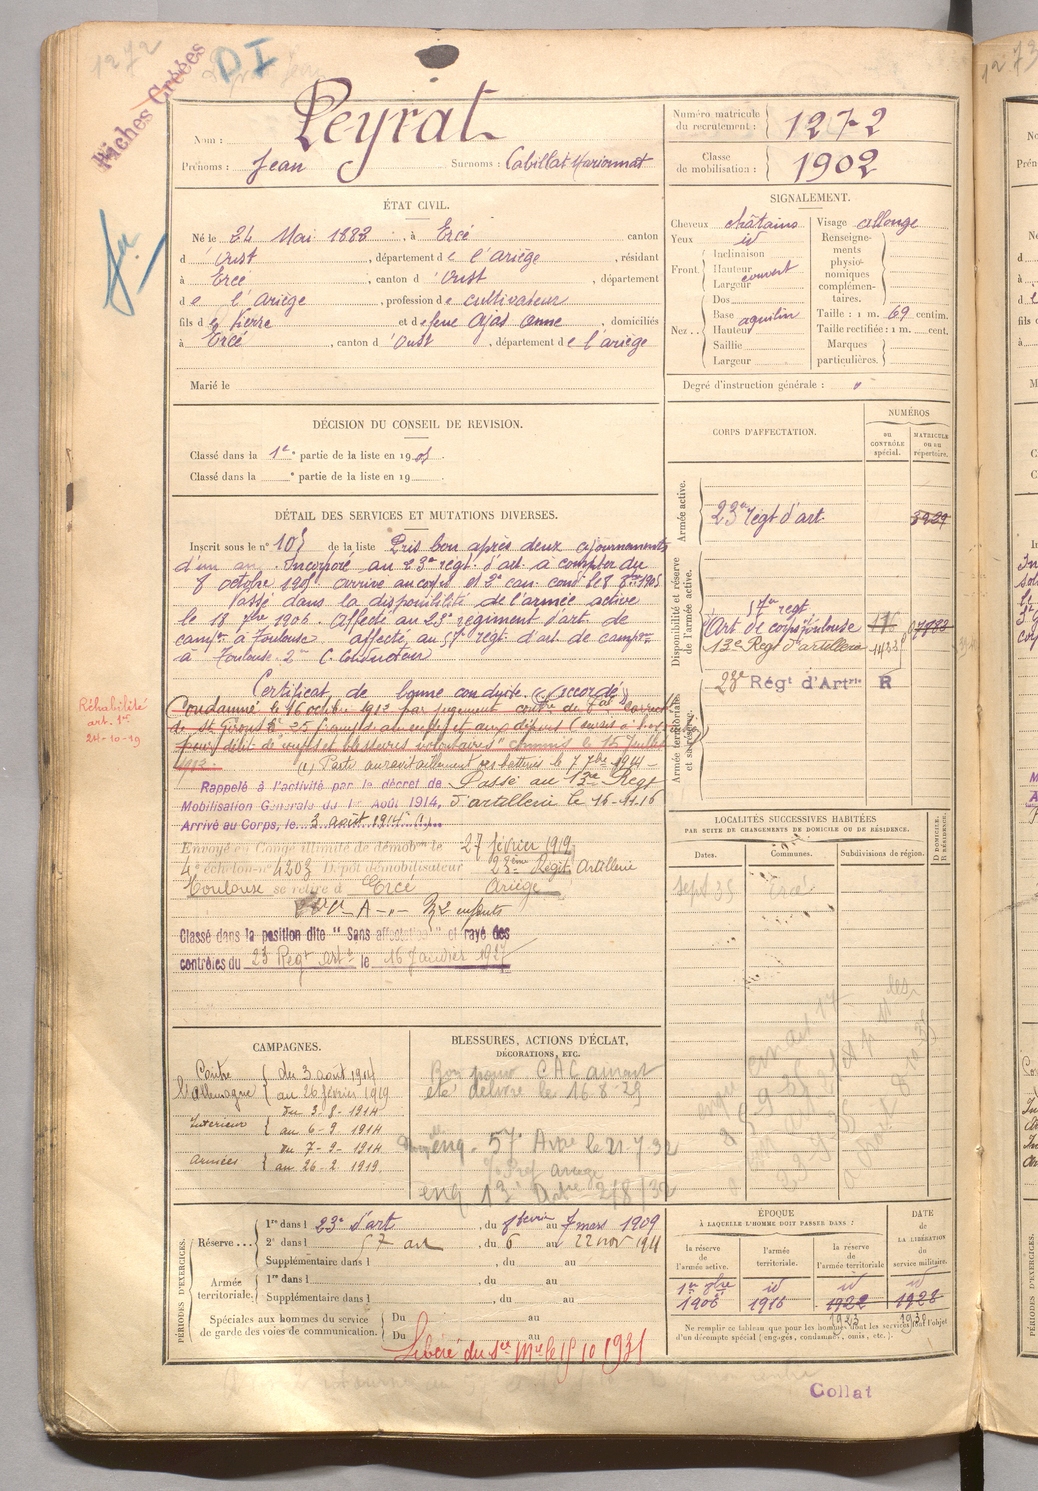 1272
Fiches Créées
D I
Nom : Peyrat
Prénoms : Jean Surnoms : Cabillat Marionnat
Numéro matricule du recrutement : 1272
Classe de mobilisation : 1902
ÉTAT CIVIL.
Né le 24 Mai 1882, à Ercé canton
d'Oust, département de l'ariège, résidant
à Ercé, canton d'Oust, département
de l'ariège, profession de cultivateur
fils de Pierre et de feue Ajas Anne, domiciliés
à Ercé, canton d'Oust, département de l'ariège
Marié le
SIGNALEMENT.
Cheveux châtains
Yeux id
Front. Inclinaison
Hauteur
Largeur couvert
Nez.. Dos
Base aquilin
Hauteur
Saillie
Largeur
Visage allongé
Renseignements physionomiques complémentaires.
Taille : 1 m. 69 centim.
Taille rectifiée : 1 m. cent.
Marques particulières.
Degré d'instruction générale :
DÉCISION DU CONSEIL DE REVISION.
Classé dans la 1e partie de la liste en 1905
Classé dans la e partie de la liste en 19
CORPS D'AFFECTATION.
NUMÉROS
au CONTRÔLE spécial.
MATRICULE ou au répertoire.
Armée active.
23e régt d'art.
Disponibilité et réserve de l'armée active.
57e regt
Art de corps Toulouse
13e Regt d'artillerie
Armée territoriale et sa réserve.
23e Régt d'Artrie R
DÉTAIL DES SERVICES ET MUTATIONS DIVERSES.
Inscrit sous le n° 105 de la liste Pris bon après deux ajournements
d'un an. Incorporé au 23e régt. d'art. à compter du
8 octobre 1905 arrivé au corps et 2e can. condr le 8 8bre 1905
Passé dans la disponibilité de l'armée active
le 18 7bre 1906. Affecté au 23e régiment d'art. de
campne à Toulouse. affecté au 57e régt. d'art de campne
à Toulouse. 2me C. Conducteur
Certificat de bonne conduite "accordé"
Condamné le 16 octobre 1912 par jugement contre du tal correct
de St Girons à 25 francs d'amende et aux dépens (sursis à
pour délit de "coups et blessures volontaires" commis le 15 Juillet
1912. (1) Parti au ravitaillement des batteries le 7 7bre 1914
Réhabilité
art. 1er
24-10-19
Rappelé à l'activité par le décret de Passé au 13e Régt
Mobilisation Générale du 1er Août 1914, d'artillerie le 16-11.16
Arrivé au Corps, le 3 août 1914 (1)
Envoyé en Congé illimité de démobon le 27 février 1919
4e échelon n° 4203 Dépôt démobilisateur 23ème Régt Artillerie
Toulouse se retire à Ercé Ariège
A 2 enfants
Classé dans la position dite "Sans affectation" et rayé des
contrôles du 23 Regt art le 16 Janvier 1927
LOCALITÉS SUCCESSIVES HABITÉES
PAR SUITE DE CHANGEMENTS DE DOMICILE OU DE RÉSIDENCE.
Dates. Communes. Subdivisions de région. D DOMICILE. R RÉSIDENCE.
Sept 35 Ercé
CAMPAGNES.
Contre l'Allemagne du 3 août 1914
au 26 février 1919
Intérieur du 3-8-1914
au 6-9-1914
Armées du 7-9-1914
au 26-2-1919
BLESSURES, ACTIONS D'ÉCLAT,
DÉCORATIONS, ETC.
Bon pour C A C
été délivré le 16-8-29
enq. 57e Artie le 21-7-32
Pref ariège
enq 13e Artie 2/8/32
PÉRIODES D'EXERCICES.
Réserve... 1re dans l 23e d'art, du 8 fevrier au 7 mars 1909
2e dans l 57 art, du 6 au 22 nov 1911
Supplémentaire dans l, du au
Armée territoriale. 1re dans l, du au
Supplémentaire dans l, du au
Spéciales aux hommes du service de garde des voies de communication. Du au
Du au
Libéré du sce Mre le 15 10 1931
ÉPOQUE
À LAQUELLE L'HOMME DOIT PASSER DANS :
la réserve de l'armée active.
l'armée territoriale.
la réserve de l'armée territoriale
DATE de LA LIBÉRATION du service militaire.
1er 8bre 1906
id 1916
id 1922
id 1928
Ne remplir ce tableau que pour les hommes dont les services font l'objet
d'un décompte spécial (engagés, condamnés, omis, etc.).
Collat